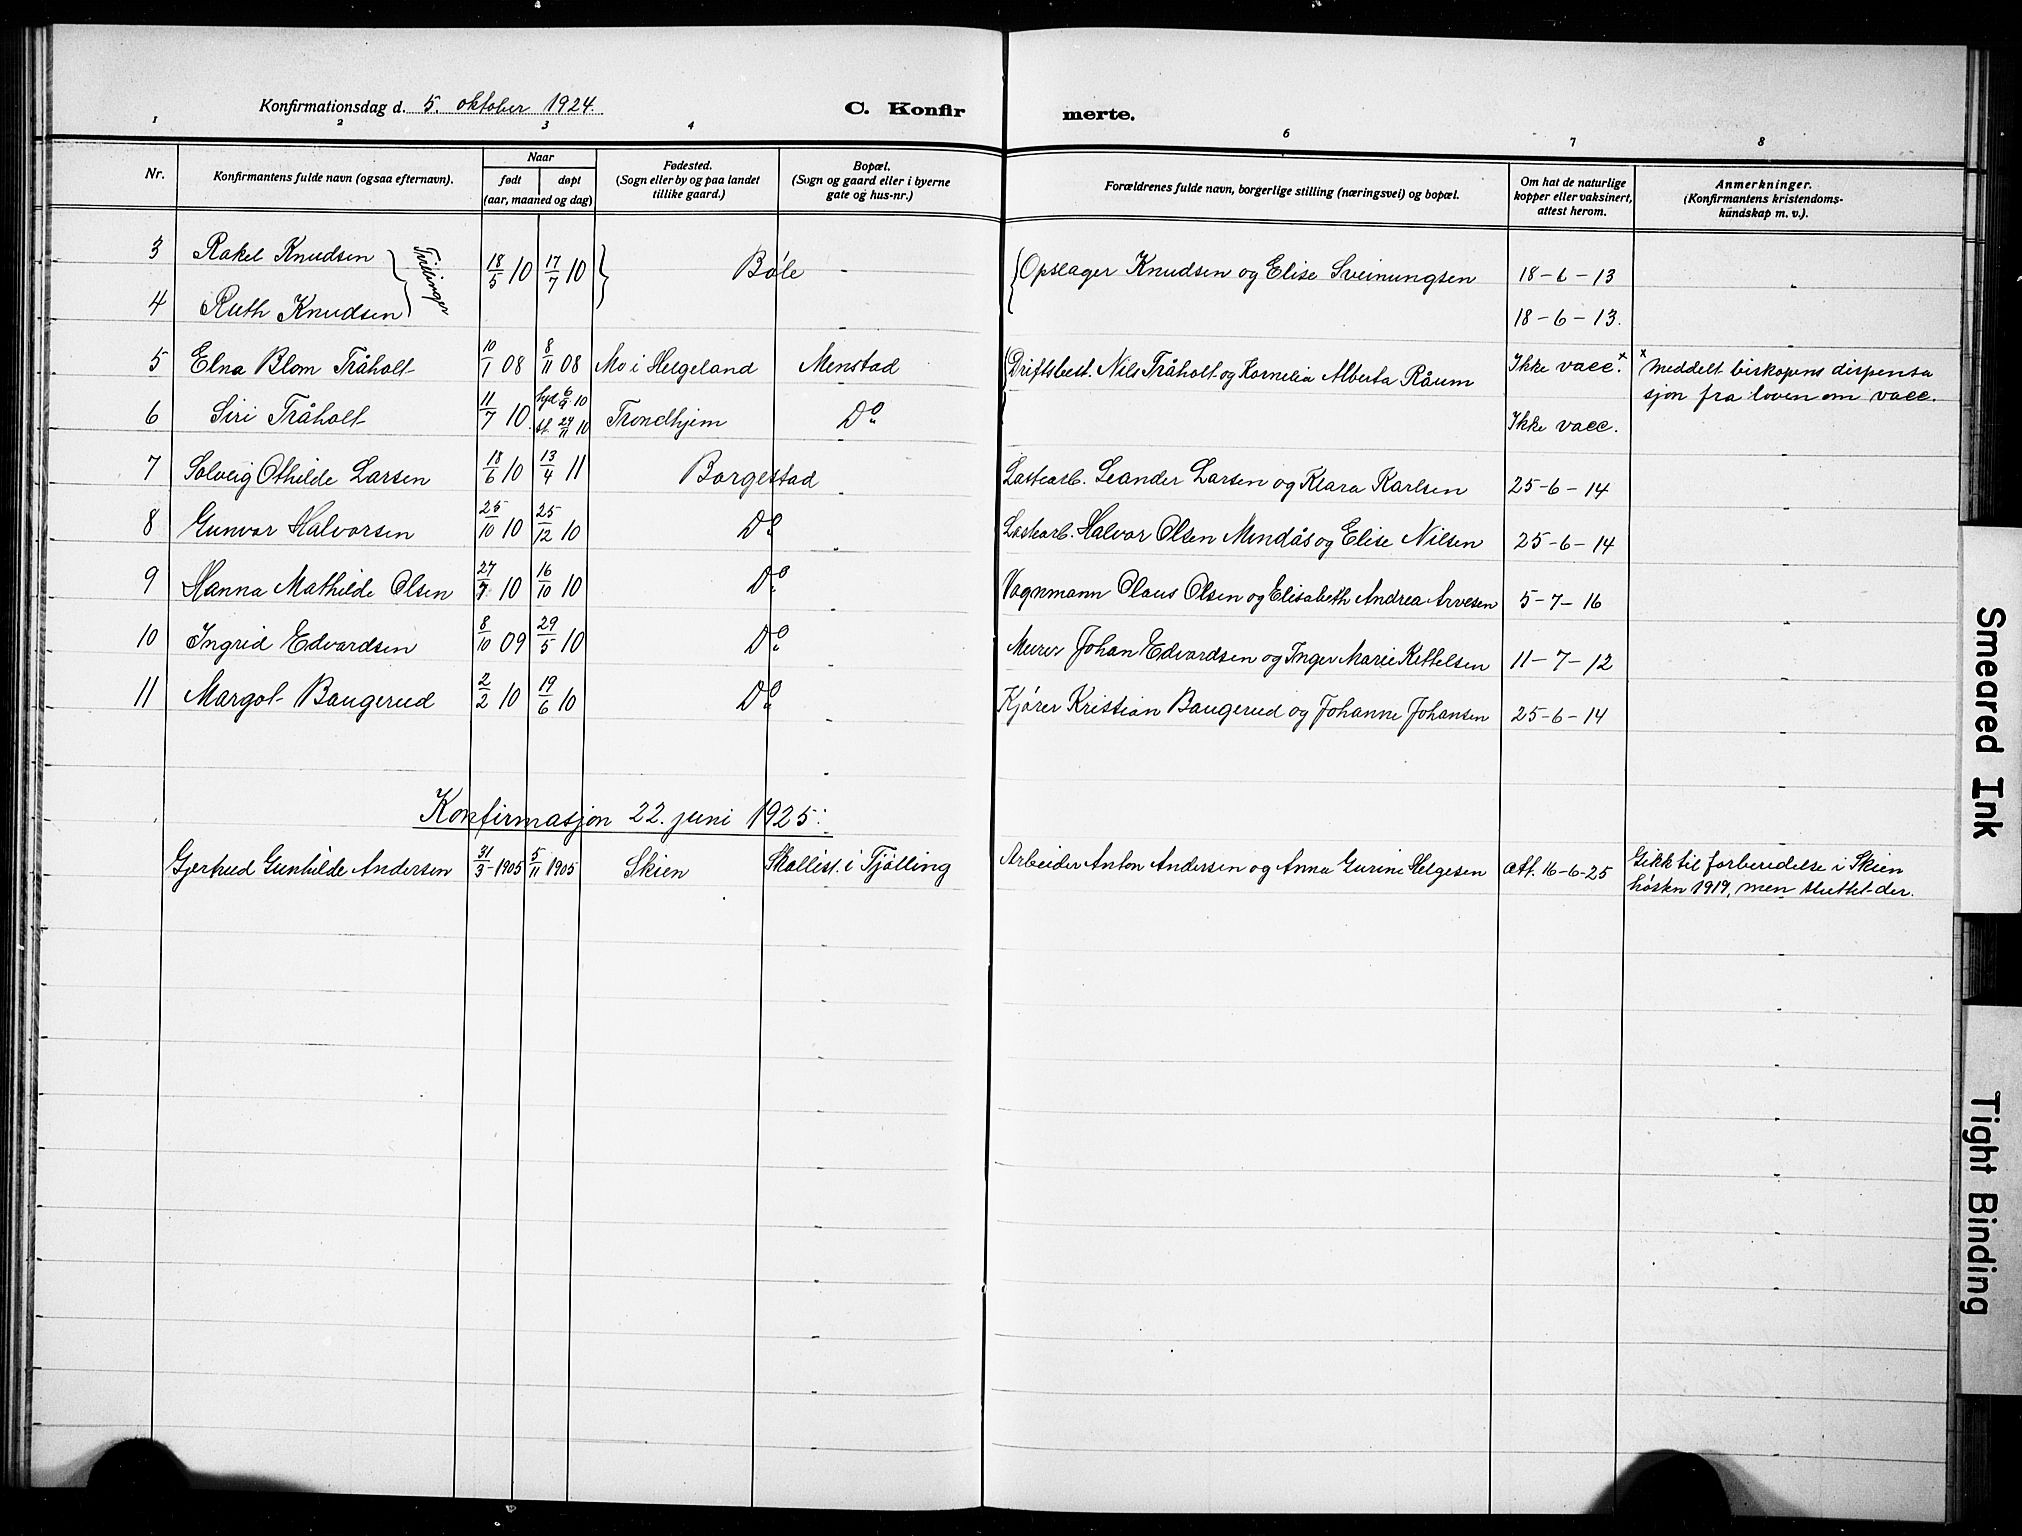 Konfirmationsdag d. 5. oktober 1924.
C. Konfirmerte.
1 2 3 4 6 7 8
Nr.
Konfirmantens fulde navn (ogsaa efternavn).
Naar
født
døpt
(aar, maaned og dag)
Fødested.
(Sogn eller by og paa landet
tillike gaard.)
Bopæl.
(Sogn og gaard eller i byerne
gate og hus-nr.)
Forældrenes fulde navn, borgerlige stilling (næringsvei) og bopæl.
Om hat de naturlige
kopper eller vaksinert,
attest herom.
Anmerkninger.
(Konfirmantens kristendoms-
kundskap m. v.).
3 Rakel Knudsen } Tvillinger 18/5 10 17/7 10 } Bøle { Opslager Knudsen og Elise Sveinungsen 18-6-13
4 Ruth Knudsen 18-6-13.
5 Elna Blom Tråholt 10/1 08 8/11 08 Mo i Helgeland Menstad { Driftsbest. Nils Tråholt og Kornelia Alberta Råum Ikke vacc.x x Meddelt biskopens dispensa
sjon fra loven om vacc.
6 Siri Tråholt 11/7 10. hjd 6/9 10 st. 24/11 10 Trondhjem Do Ikke vacc.
7 Solveig Othilde Larsen 18/6 10 13/4 11 Borgestad Lastearb. Leander Larsen og Klara Karlsen 25-6-14
8 Gunvor Halvorsen 25/10 10 25/12 10 Do Lastearb. Halvor Olsen Mindås og Elise Nilsen 25-6-14
9 Hanna Mathilde Olsen 27/7 10 16/10 10 Do Vognmann Olaus Olsen og Elisabeth Andrea Arvesen 5-7-16
10 Ingrid Edvardsen 8/10 09 29/5 10 Do Murer Johan Edvardsen og Inger Marie Kittelsen 11-7-12
11 Margot Baugerud 2/2 10 19/6 10 Do Kjører Kristian Baugerud og Johanne Johansen 25-6-14
Konfirmasjon 22. juni 1925:
Gjertrud Gunhilde Andersen 31/3-1905 5/11 1905 Skien Skallist. i Tjølling Arbeider Anton Andersen og Anna Gurine Helgesen Att. 16-6-25 Gikk til forberedelse i Skien
høsten 1919, men sluttet der.
Smeared Ink
Tight Binding